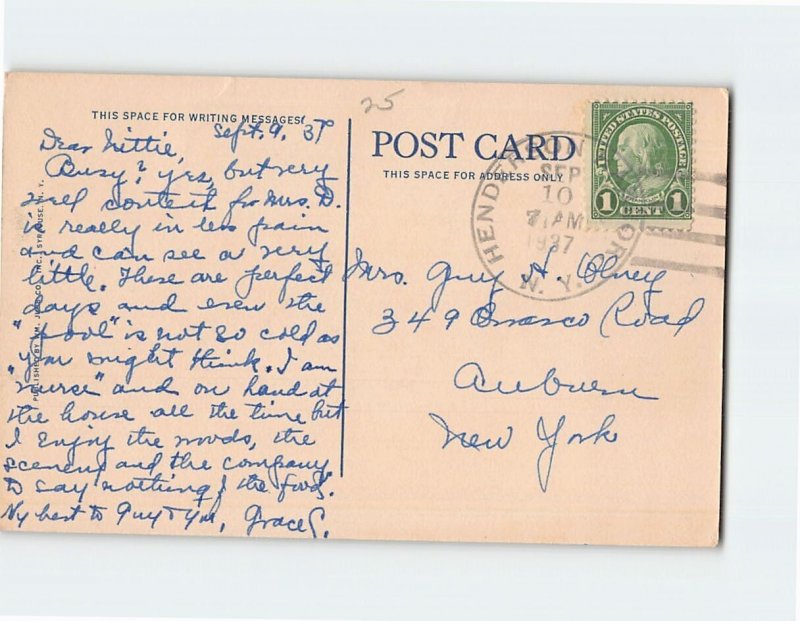 THIS SPACE FOR WRITING MESSAGES
Sept. 9, 37
Dear Nittie,
Busy? yes, but very
well content for Mrs. D.
is really in less pain
and can see a very
little. These are perfect
days and even the
"pool" is not so cold as
you might think. I am
"nurse" and on hand at
the house all the time but
I enjoy the woods, the
scenery and the company,
to say nothing of the food.
My best to Guy & you, Grace C.
25
POST CARD
THIS SPACE FOR ADDRESS ONLY
HENDERSON
SEP
10
7 AM
1937
N. Y.
UNITED STATES POSTAGE
1 CENT 1
Mrs. Guy H. Olney
349 Owasco Road
Auburn
New York
PUBLISHED BY WM. CO., INC., SYRACUSE, N. Y.